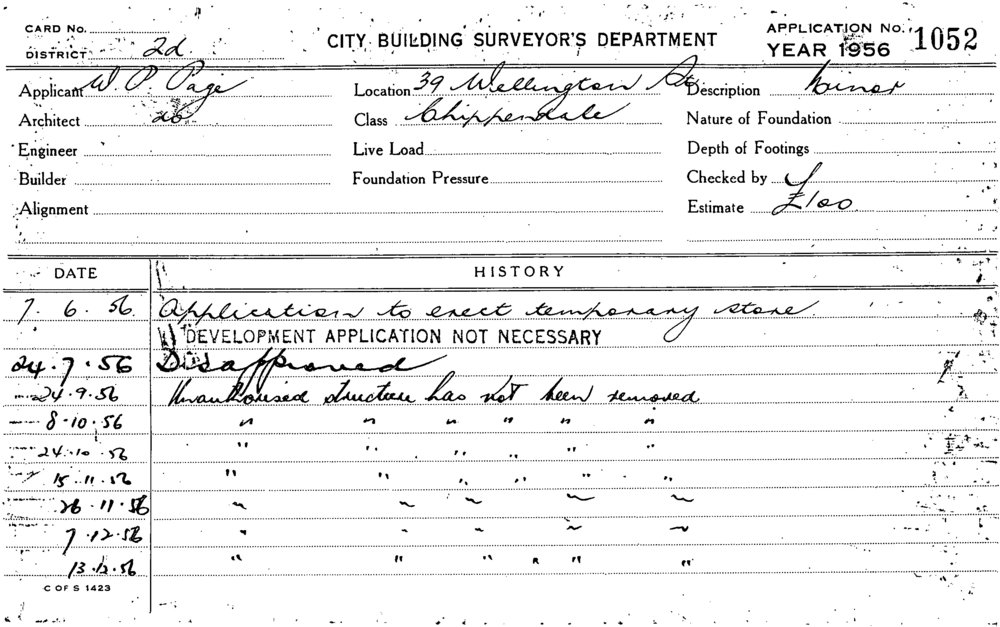 CARD No.
DISTRICT 2d
CITY BUILDING SURVEYOR'S DEPARTMENT
APPLICATION No. 1052
YEAR 1956
Applicant W. P. Page
Location 39 Wellington St.
Description Minor
Architect
Class Chippendale
Nature of Foundation
Engineer
Live Load
Depth of Footings
Builder
Foundation Pressure
Checked by
Alignment
Estimate £100
DATE HISTORY
7. 6. 56 Application to erect temporary store
DEVELOPMENT APPLICATION NOT NECESSARY
24.7.56 Disapproved
24.9.56 Unauthorised structure has not been removed
8.10.56 " " " " " "
24.10.56 " " " " " "
15.11.56 " " " " " "
26.11.56 " " " " "
7.12.56 " " " " "
13.12.56 " " " " " "
C OF S 1423